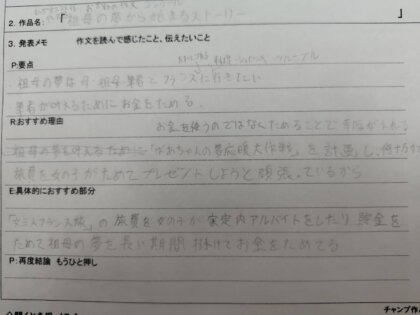 2. 作品名: 「祖母の夢から始まるストーリー 」
3. 発表メモ 作文を読んで感じたこと、伝えたいこと
P:要点
・祖母の夢は母・祖母・筆者とフランスに行きたい
筆者が叶えるためにお金をためる。
R:おすすめ理由 お金を使うのではなくためることで
祖母の夢を叶えるため「ばあちゃんの夢応援大作戦」を計画し、
旅費を女の子がためてプレゼントしようと頑張っているから
E:具体的におすすめ部分
の旅費を女の子が家庭内アルバイトをしたり貯金を
ためて祖母の夢を長い期間掛けてお金をためてる
P:再度結論 もうひと押し
チャンプ作